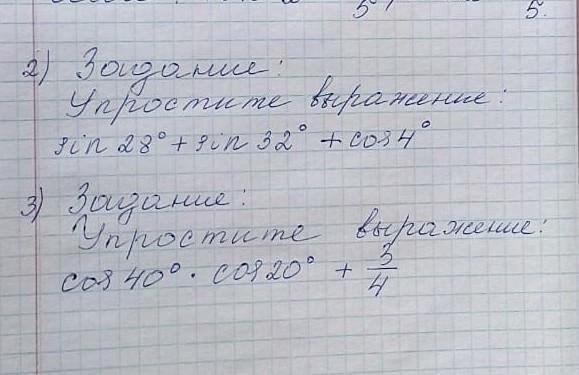 5 , 5.
2) Задание:
Упростите выражение:
sin 28° + sin 32° + cos 4°
3) Задание:
Упростите выражение:
cos 40° · cos 20° + 3/4